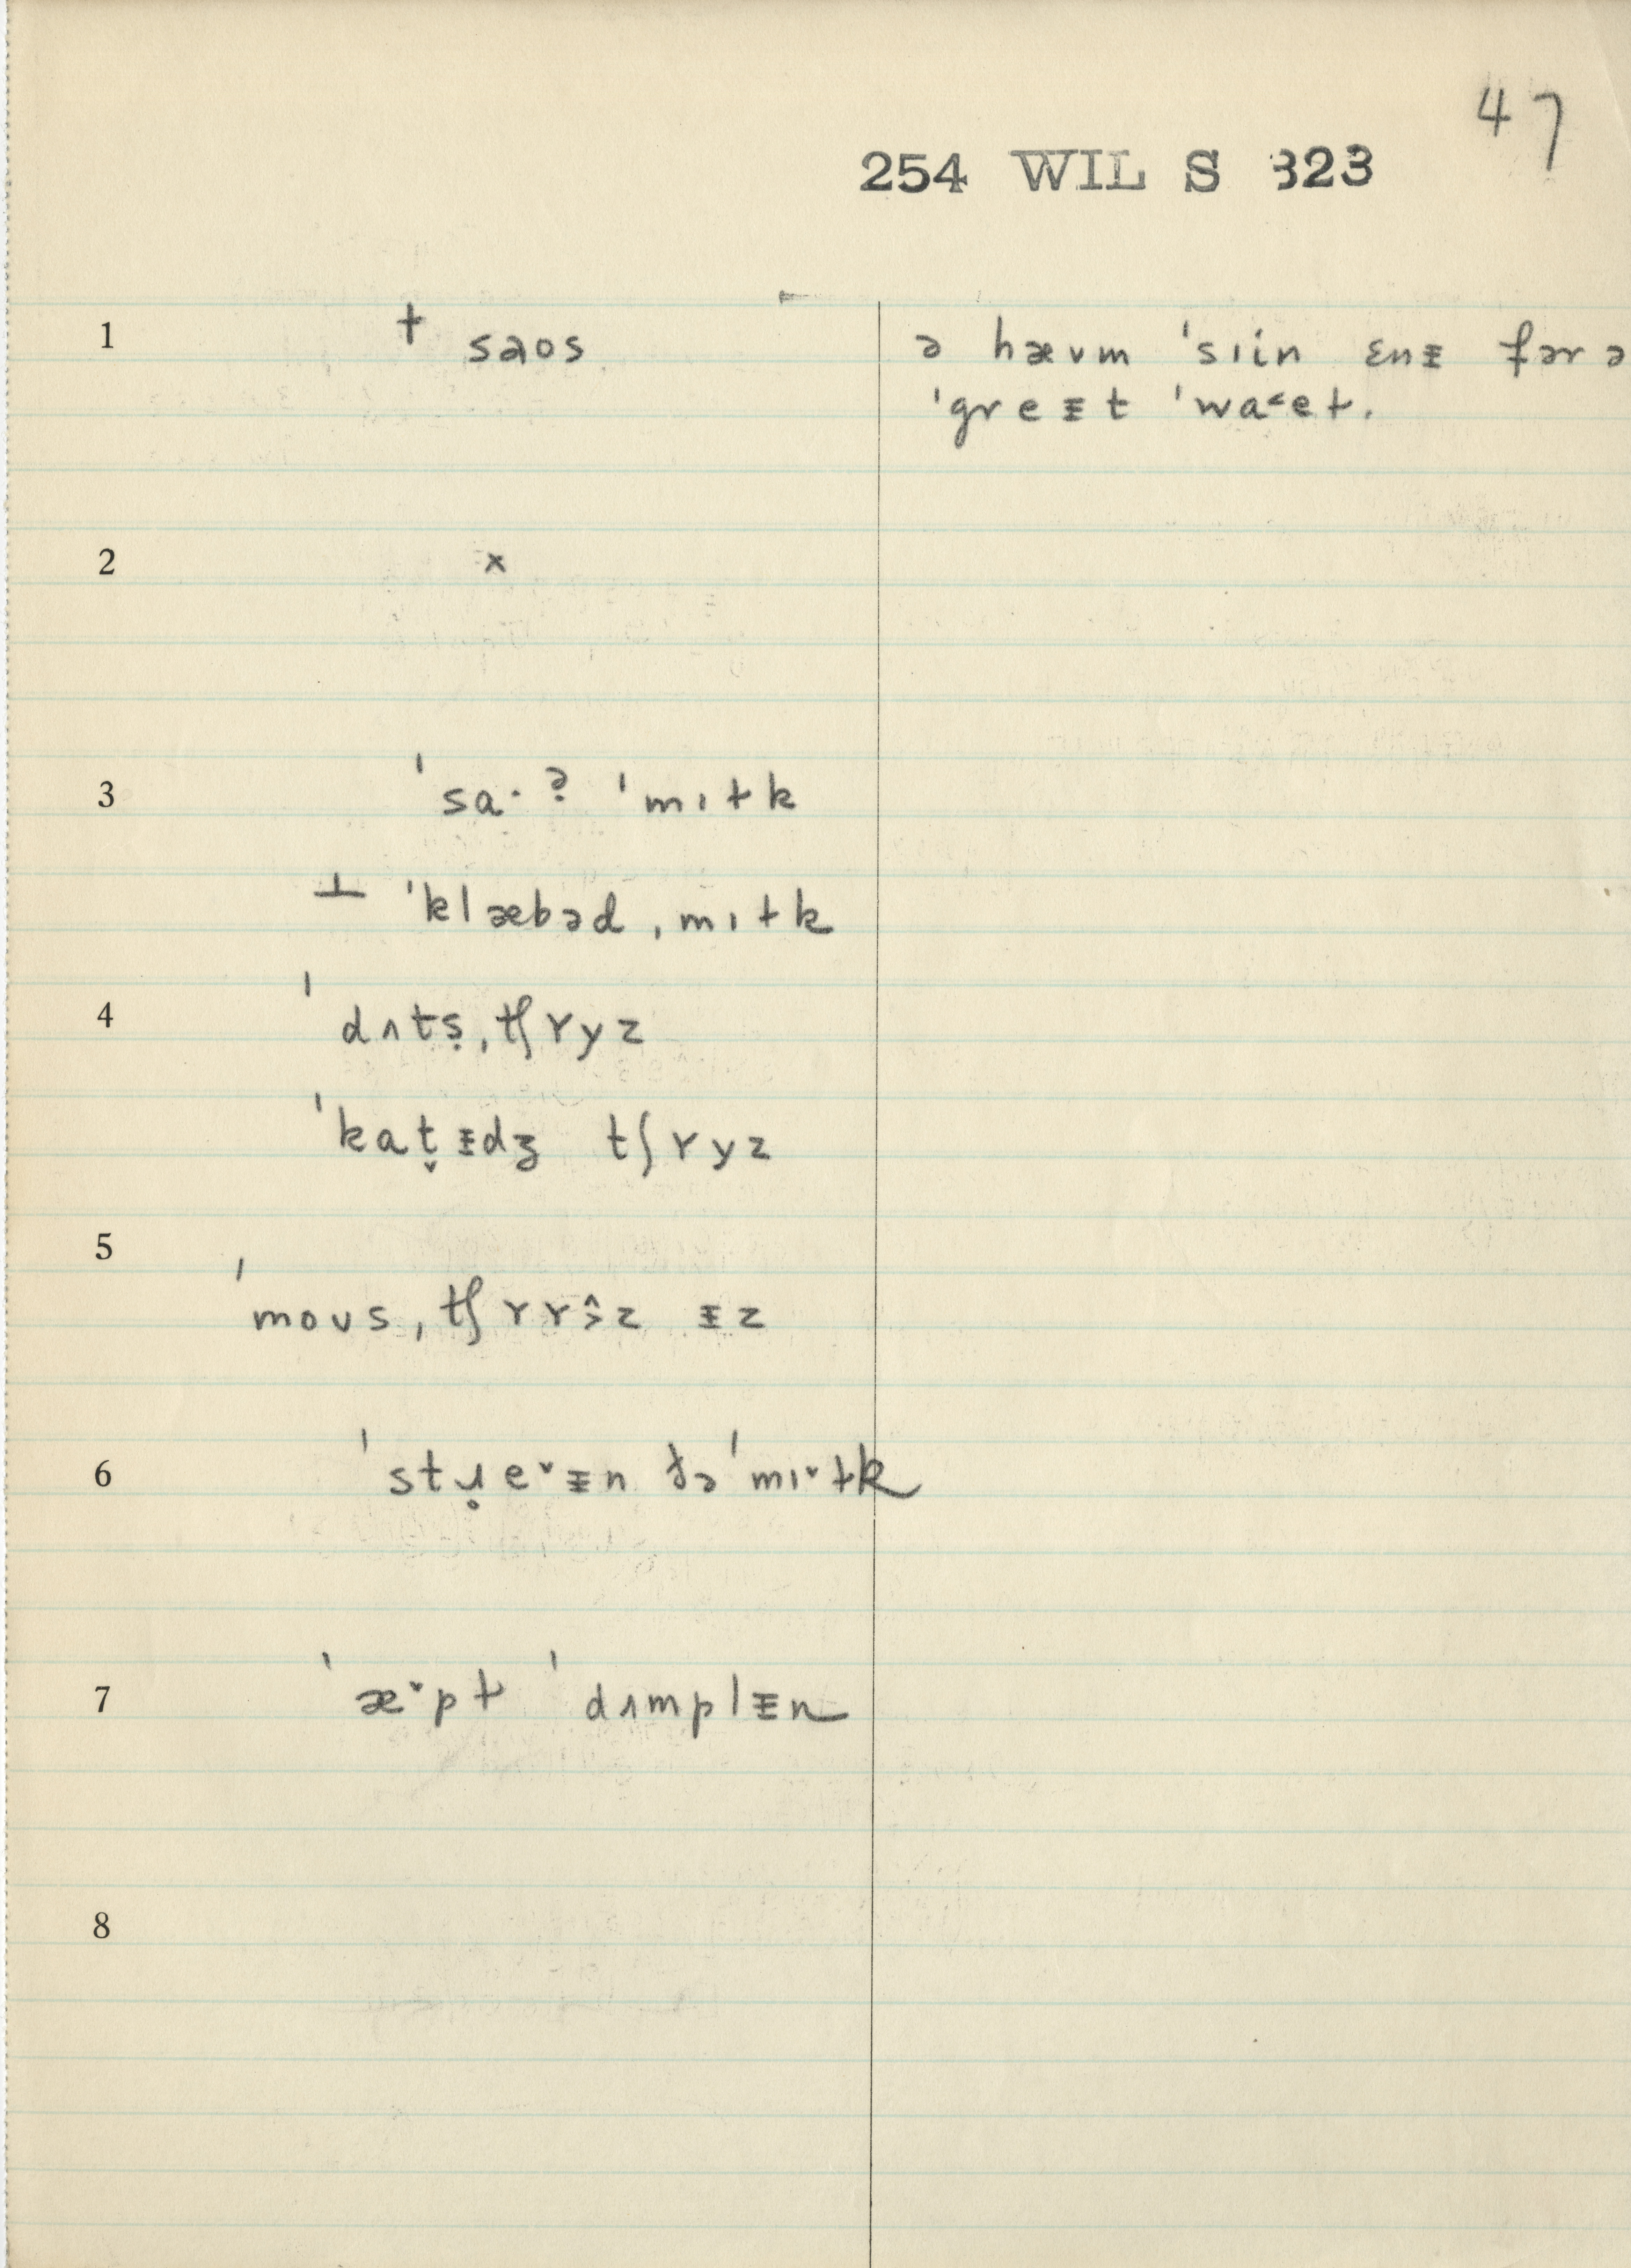 47
254 WIL S 323
1 † saos ə hævm ˈsıin ɛnᵻ fər ə
ˈgreᵻt ˈwa˂eɫ.
2 x
3 ˈsa·ɂ̣ ˈmıɫk
⊥ ˈklæbəd ˌmıɫk
4 ˈdʌtṣ ˌtʃɤyz
ˈkat̬ᵻdʒ tʃɤyz
5 ˈmoʊs ˌtʃɤɤ˄˃z ᵻz
6 ˈstɹ̥e˅ᵻn ðə ˈmı˅ɫk
7 ˈæ˅pɫ ˈdʌmplᵻn
8